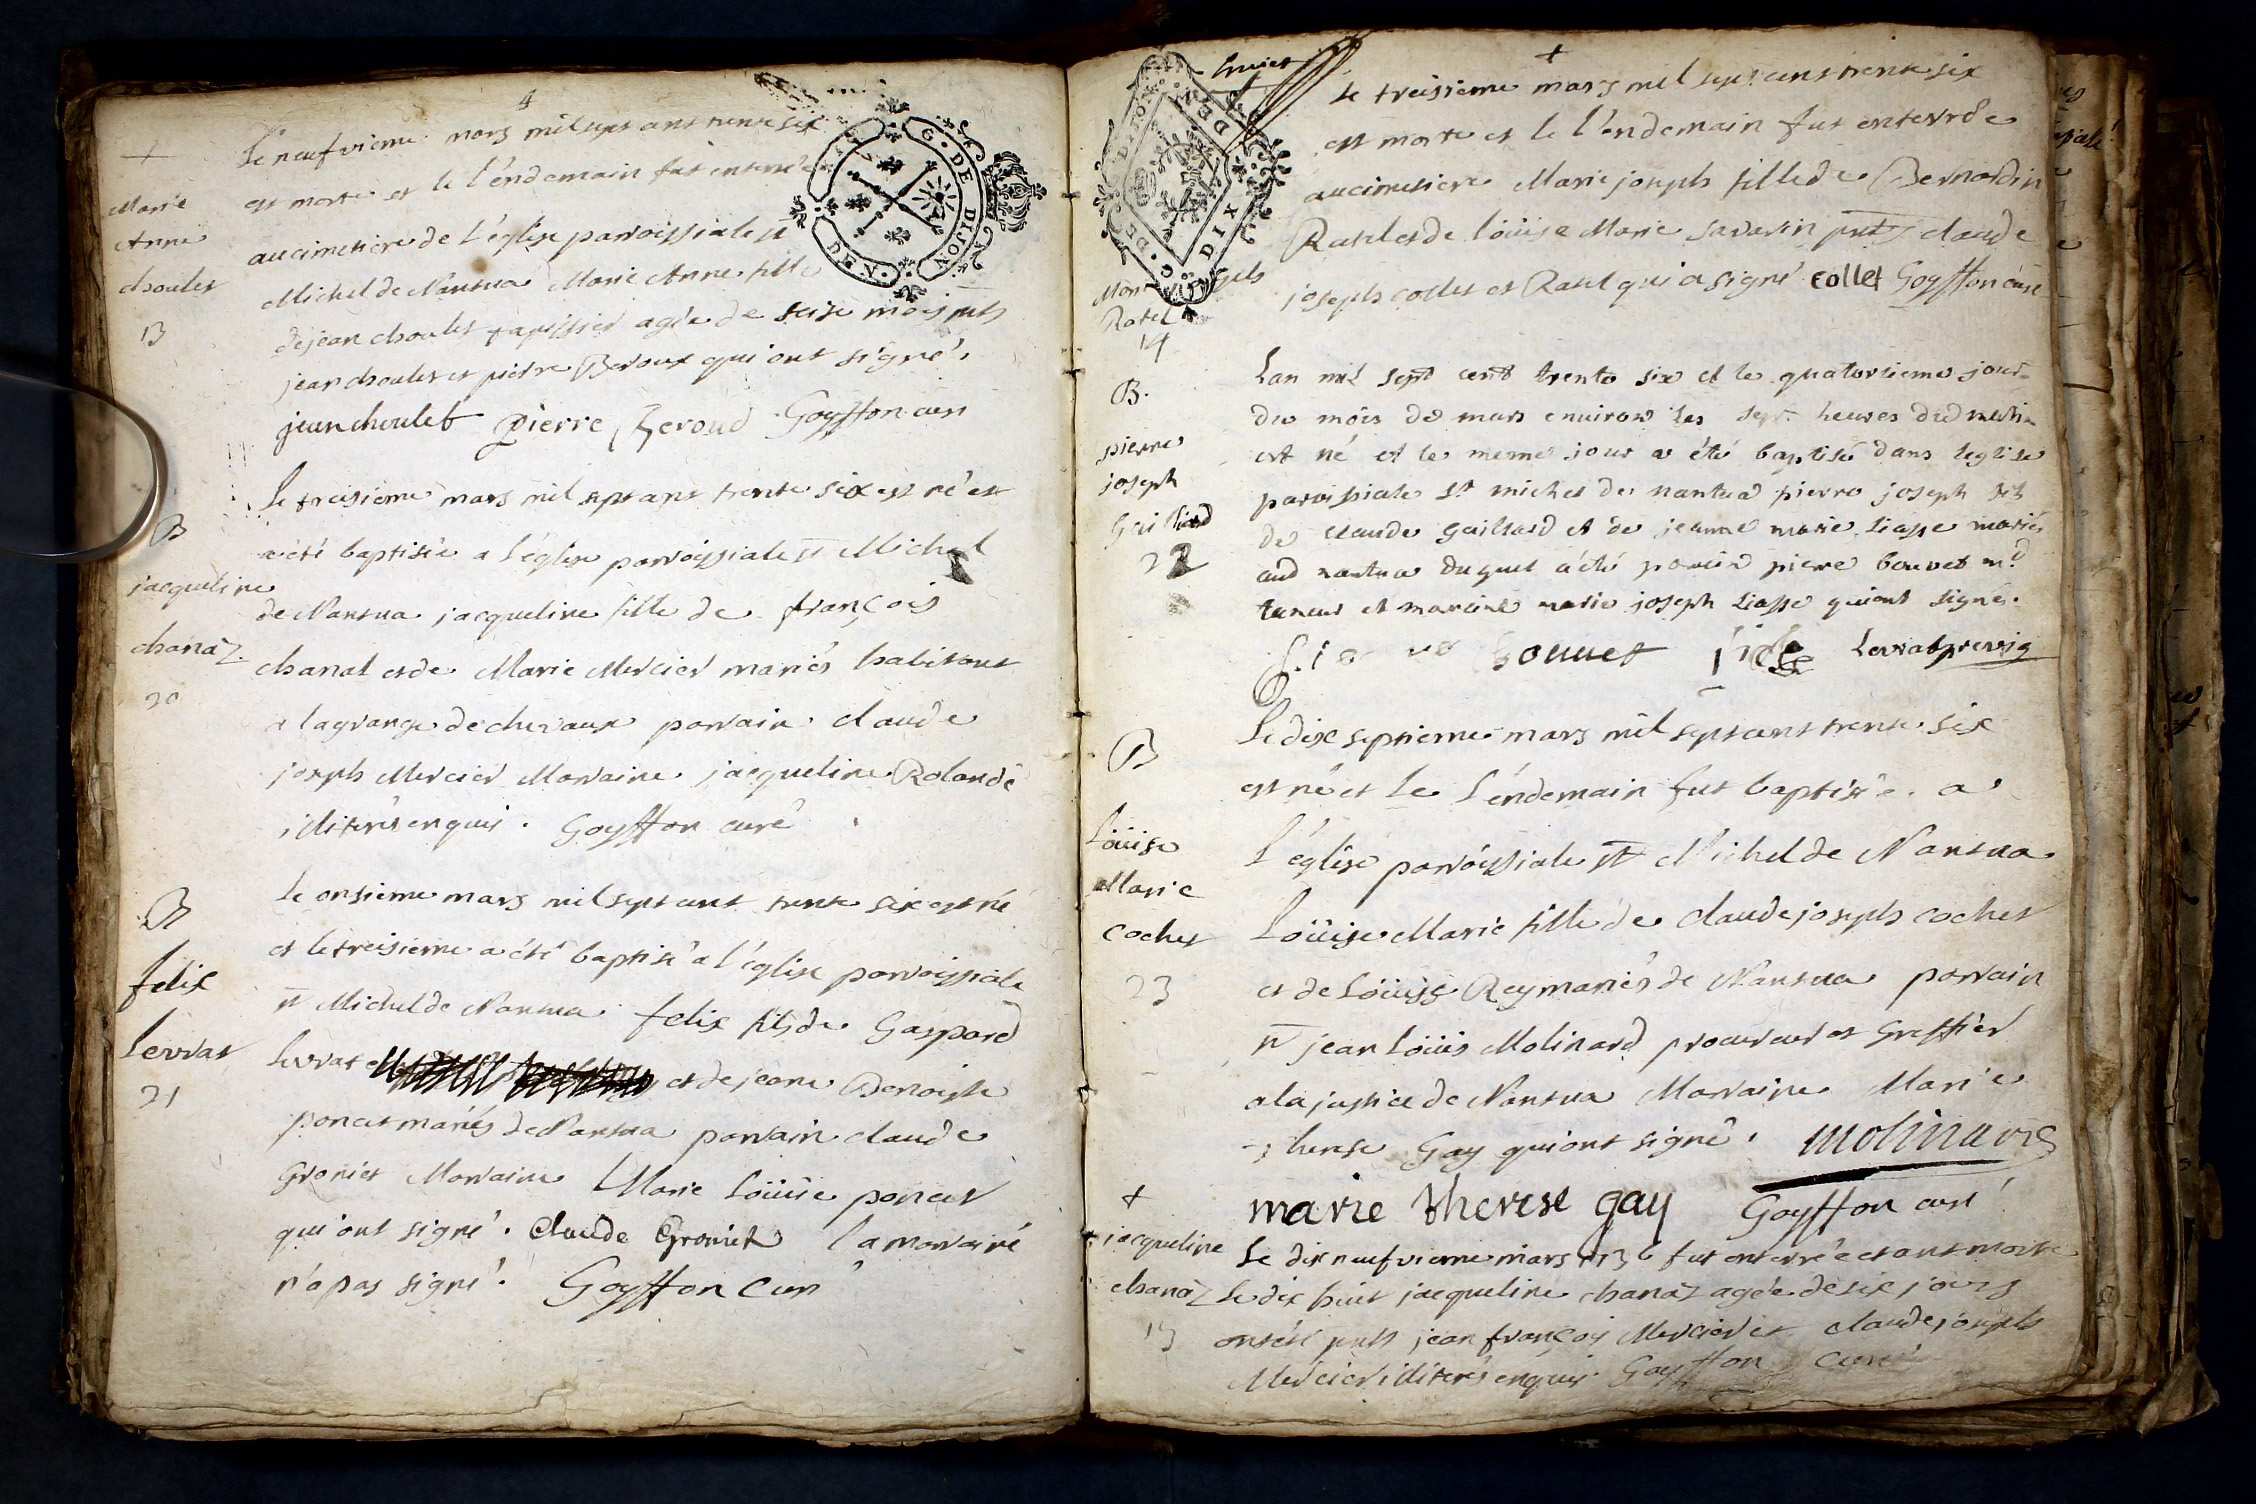 4
+
Marie
Anne
choulet
13
Le neufvieme mars mil sept cent trente six
est morte et le l'éndemain fut enterrée
au cimetiere de l'église parroissiale st
Michel de Nantua Marie Anne fille
de jean choulet tapissier agée de seise mois pnts
jean choulet et pierre Beroux qui ont signé.
jean choulet pierre Beroud Goyffon curé
B
jacqueline
chanaz
20
Le treisieme mars mil sept cent trente six est né et
a été baptisée a l'église parroissiale st Michel
de Nantua jacqueline fille de françois
chanal et de Marie Mercier mariés habitant
a la grange de chevaux parrain claude
joseph Mercier Marraine jacqueline Rolande
illiterés enquis. Goyffon curé
B
felix
Levrat
21
Le onsieme mars mil sept cent trente six est né
et le treisieme a été baptisé a l'église parroissiale
st Michel de Nantua felix fils de Gaspard
Levrat et de jeane Benoiste
poncet mariés de Nantua parrain claude
Groniet Marraine Marie Loüise poncet
qui ont signé. Claude Groniet la marraine
n'a pas signé. Goyffon Curé
G. DE DIJON
DE. N.
+
G. DE DIJON
DIX DE
joseph
Ratel
14
Le treisieme mars mil sept cens trente six
est morte et le l'éndemain fut enterrée
au cimetiere Marie joseph fille de Bernardin
Ratel et de loüise Marie savarin pnts claude
joseph collet et Ratel qui a signé collet Goyffon curé
B.
pierre
joseph
Gaillard
22
Lan mil sept cent trente six et le quatorsieme jour
du mois de mars environ les sept heures du matin
est né et le meme jour a été baptisé dans leglise
paroissiale st michel de nantua pierre joseph fils
de claude gaillard et de jeanne marie Liasse mariés
aud nantua duquel a été parrin pierre bouvet md
tanneur et marine marie joseph Liasse qui ont signé.
bouvet Levrat prevy
B
Loüise
Marie
cochet
23
Le dix septieme mars mil sept cent trente six
est né et le l'éndemain fut baptisée a
l'église parroissiale st Michel de Nantua
Loüise Marie fille de claude joseph cochet
et de Loüise Rey mariés de Nantua parrain
sr jean Loüis Molinard procureur et Greffier
a la justice de Nantua Marraine Marie
therese Gay qui ont signé. molinard
marie therese gay Goyffon curé
+
jacqueline
chanaz
15
Le dix neufvieme mars 1736 fut enterrée etant morte
Le dix huit jacqueline chanaz agée de six jours
pnts jean françois Mercier et claude joseph
Mercier illiterés enquis Goyffon curé